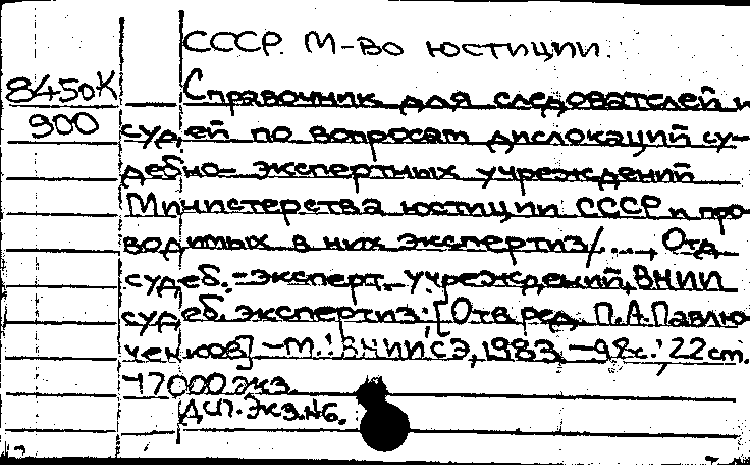 СССР. М-во юстиции.
8450К Справочник для следователей и
900 судей по вопросам дислокаций су-
дебно-экспертных учреждений
Министерства юстиции СССР и про-
водимых в них экспертиз/..., Отд
судеб.-эксперт. учреждений, ВНИИ
судеб. экспертиз; [Отв. ред. П.А.Павлю-
ченков] - М.: ВНИИСЭ, 1983. - 98с.; 22 см.
-17000 экз.
ДСП. Экз.№6.